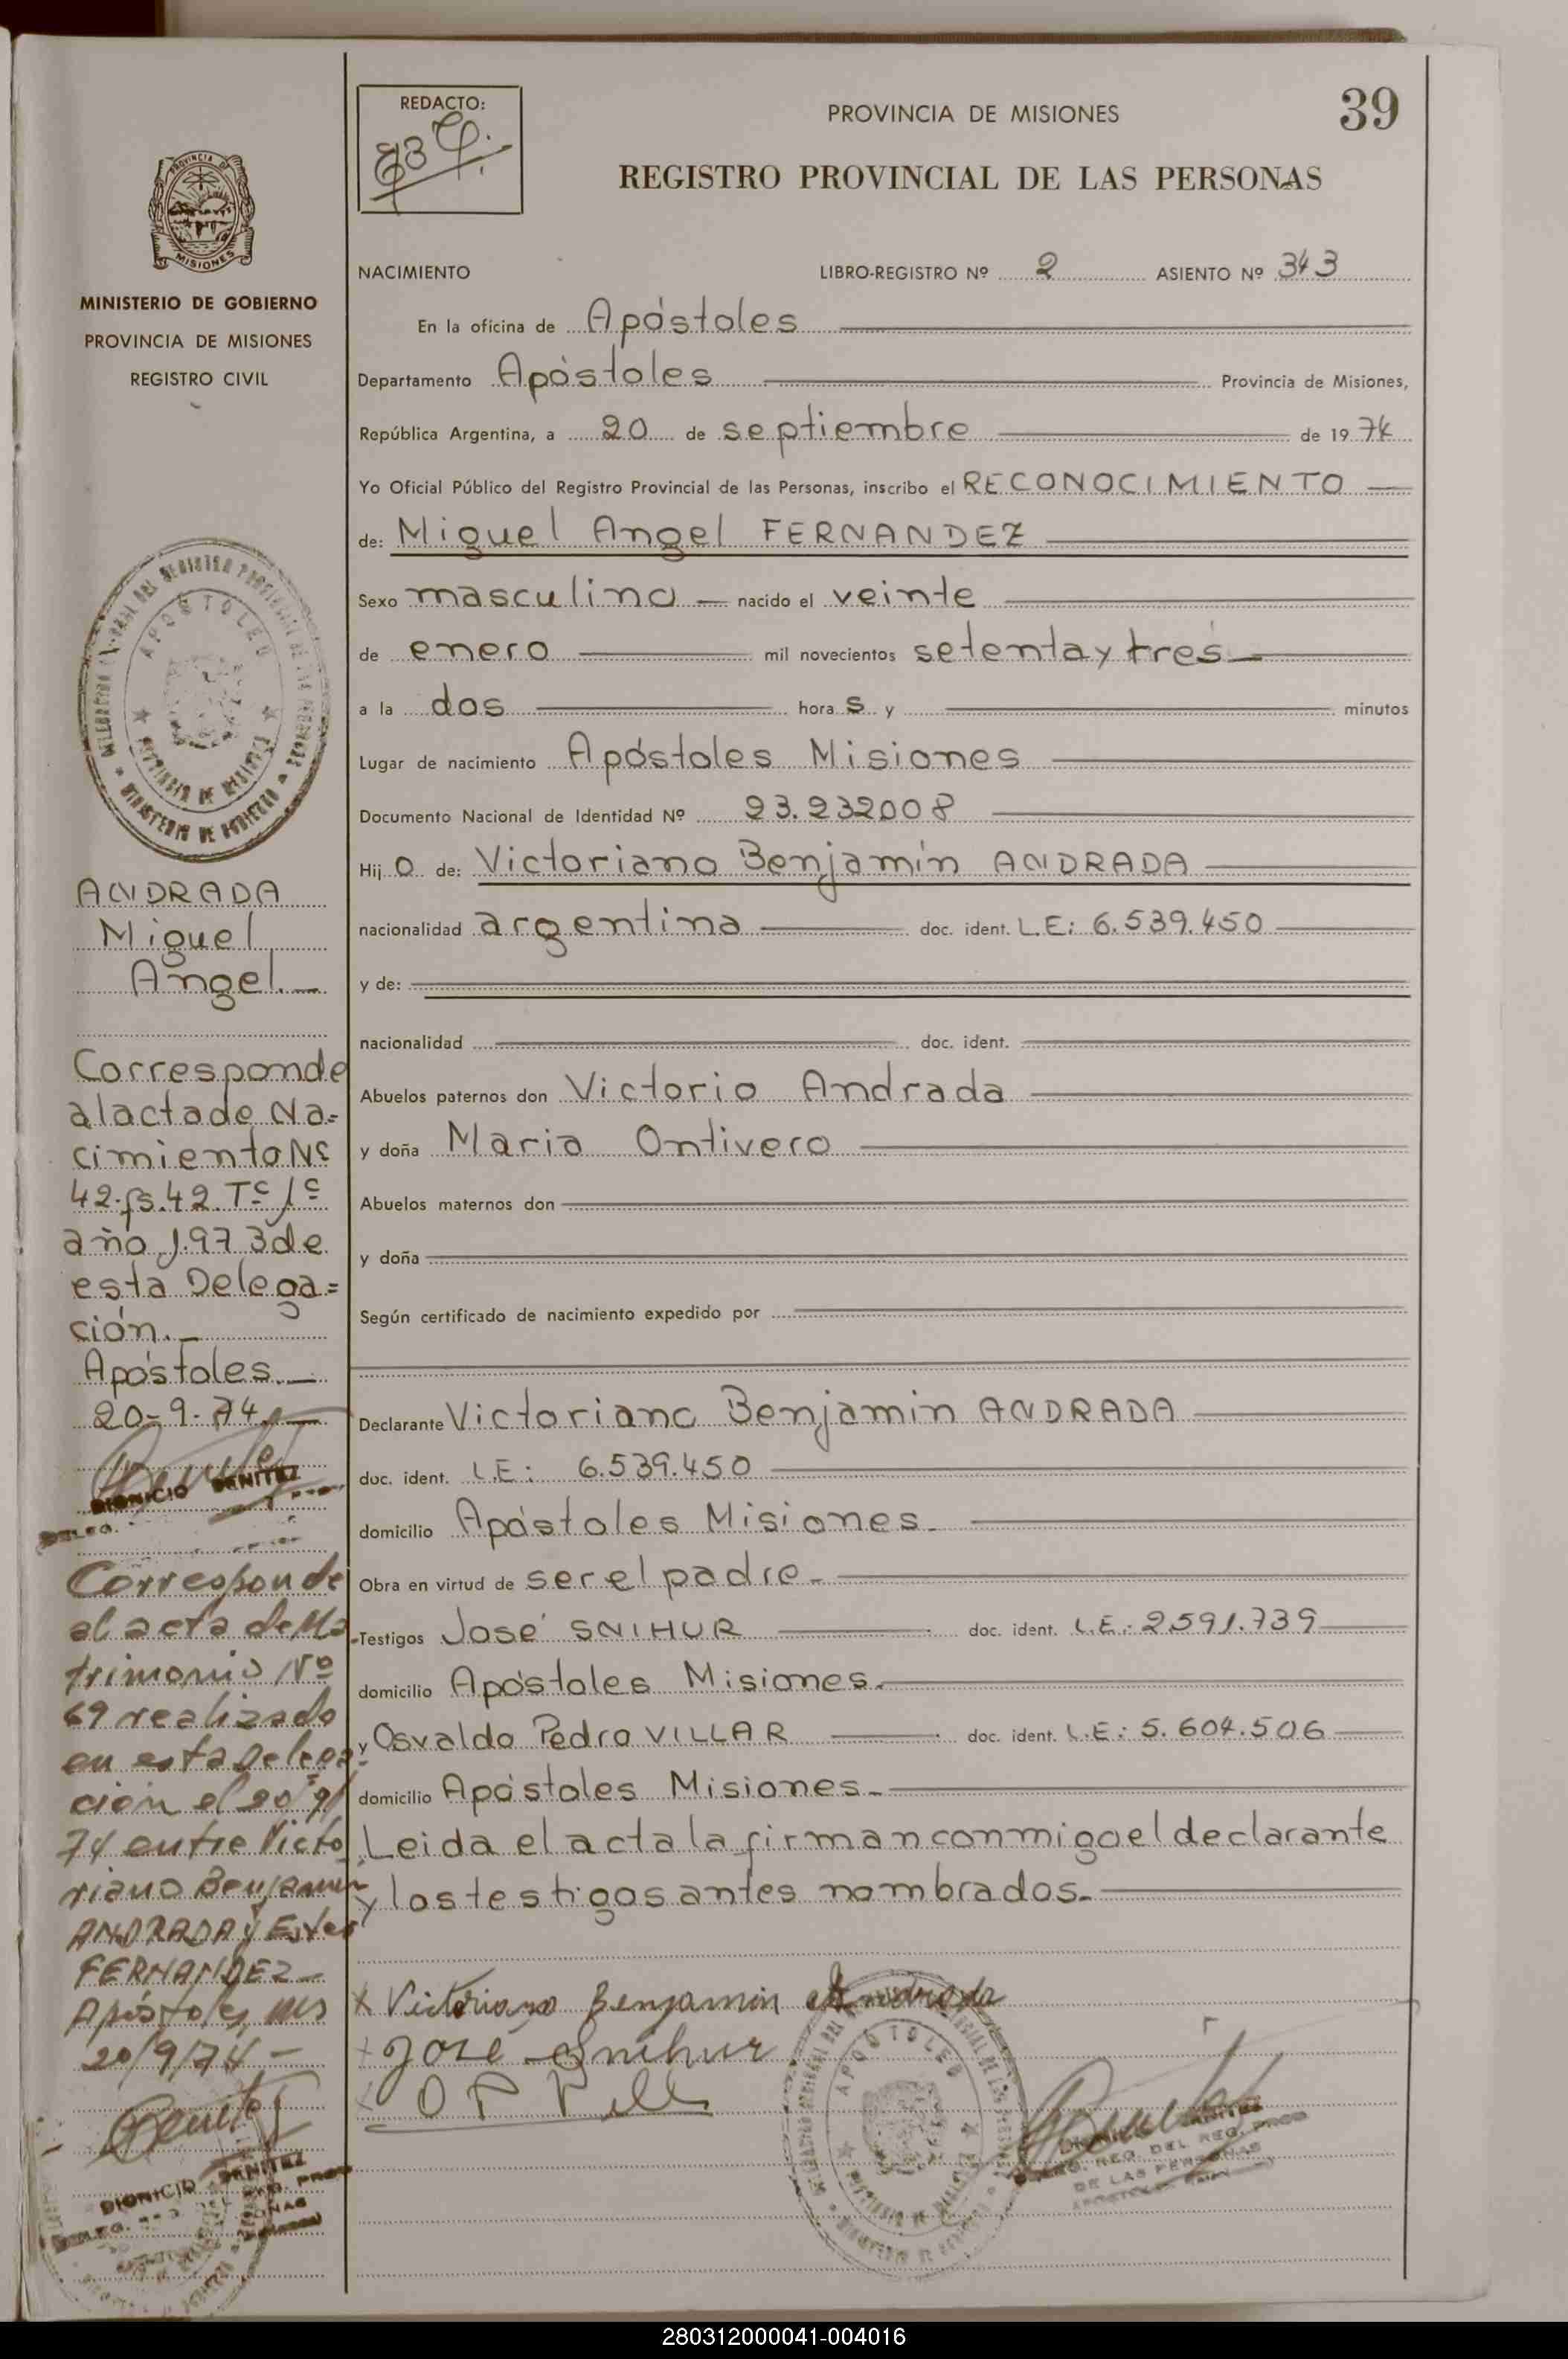 39
REDACTO:
PROVINCIA DE MISIONES
REGISTRO PROVINCIAL DE LAS PERSONAS
MISIONES
MINISTERIO DE GOBIERNO
PROVINCIA DE MISIONES
REGISTRO CIVIL
NACIMIENTO LIBRO-REGISTRO Nº 2 ASIENTO Nº 343
En la oficina de Apóstoles
Departamento Apóstoles Provincia de Misiones,
República Argentina, a 20 de septiembre de 1974
Yo Oficial Público del Registro Provincial de las Personas, inscribo el RECONOCIMIENTO
de: Miguel Angel FERNANDEZ
Sexo masculino nacido el veinte
de enero mil novecientos setenta y tres
a la dos hora s y minutos
Lugar de nacimiento Apóstoles Misiones
Documento Nacional de Identidad Nº 23.232008
Hij o de: Victoriano Benjamín ANDRADA
nacionalidad argentina doc. ident. L.E: 6.539.450
y de:
nacionalidad doc. ident.
Abuelos paternos don Victorio Andrada
y doña Maria Ontivero
Abuelos maternos don
y doña
Según certificado de nacimiento expedido por
Declarante Victoriano Benjamin ANDRADA
doc. ident. L.E: 6.539.450
domicilio Apóstoles Misiones.
Obra en virtud de ser el padre.
Testigos José SNIHUR doc. ident. L.E.: 2.591.739
domicilio Apóstoles Misiones.
y Osvaldo Pedro VILLAR doc. ident. L.E: 5.604.506
domicilio Apóstoles Misiones.
Leida el acta la firman conmigo el declarante
y los testigos antes nombrados.
x Victoriano Benjamin Andrada
x José Snihur
x O P Vill
APOSTOLES
ANDRADA
Miguel
Angel.
Corresponde
al acta de Na=
cimiento Nº
42. fs. 42. Tº 1º
año 1.973 de
esta Delega=
ción.
Apóstoles.
20-9-74
DIONICIO BENITEZ
DELEG.
Corresponde
al acta de Ma-
trimonio Nº
69 realizado
en esta Delega-
ción el 20/9/
74 entre Victo-
riano Benjamin
ANDRADA y Ester
FERNANDEZ
Apóstoles, Mns
20/9/74
DIONICIO BENITEZ
DEL REG. PROV
DE LAS PERSONAS
280312000041-004016